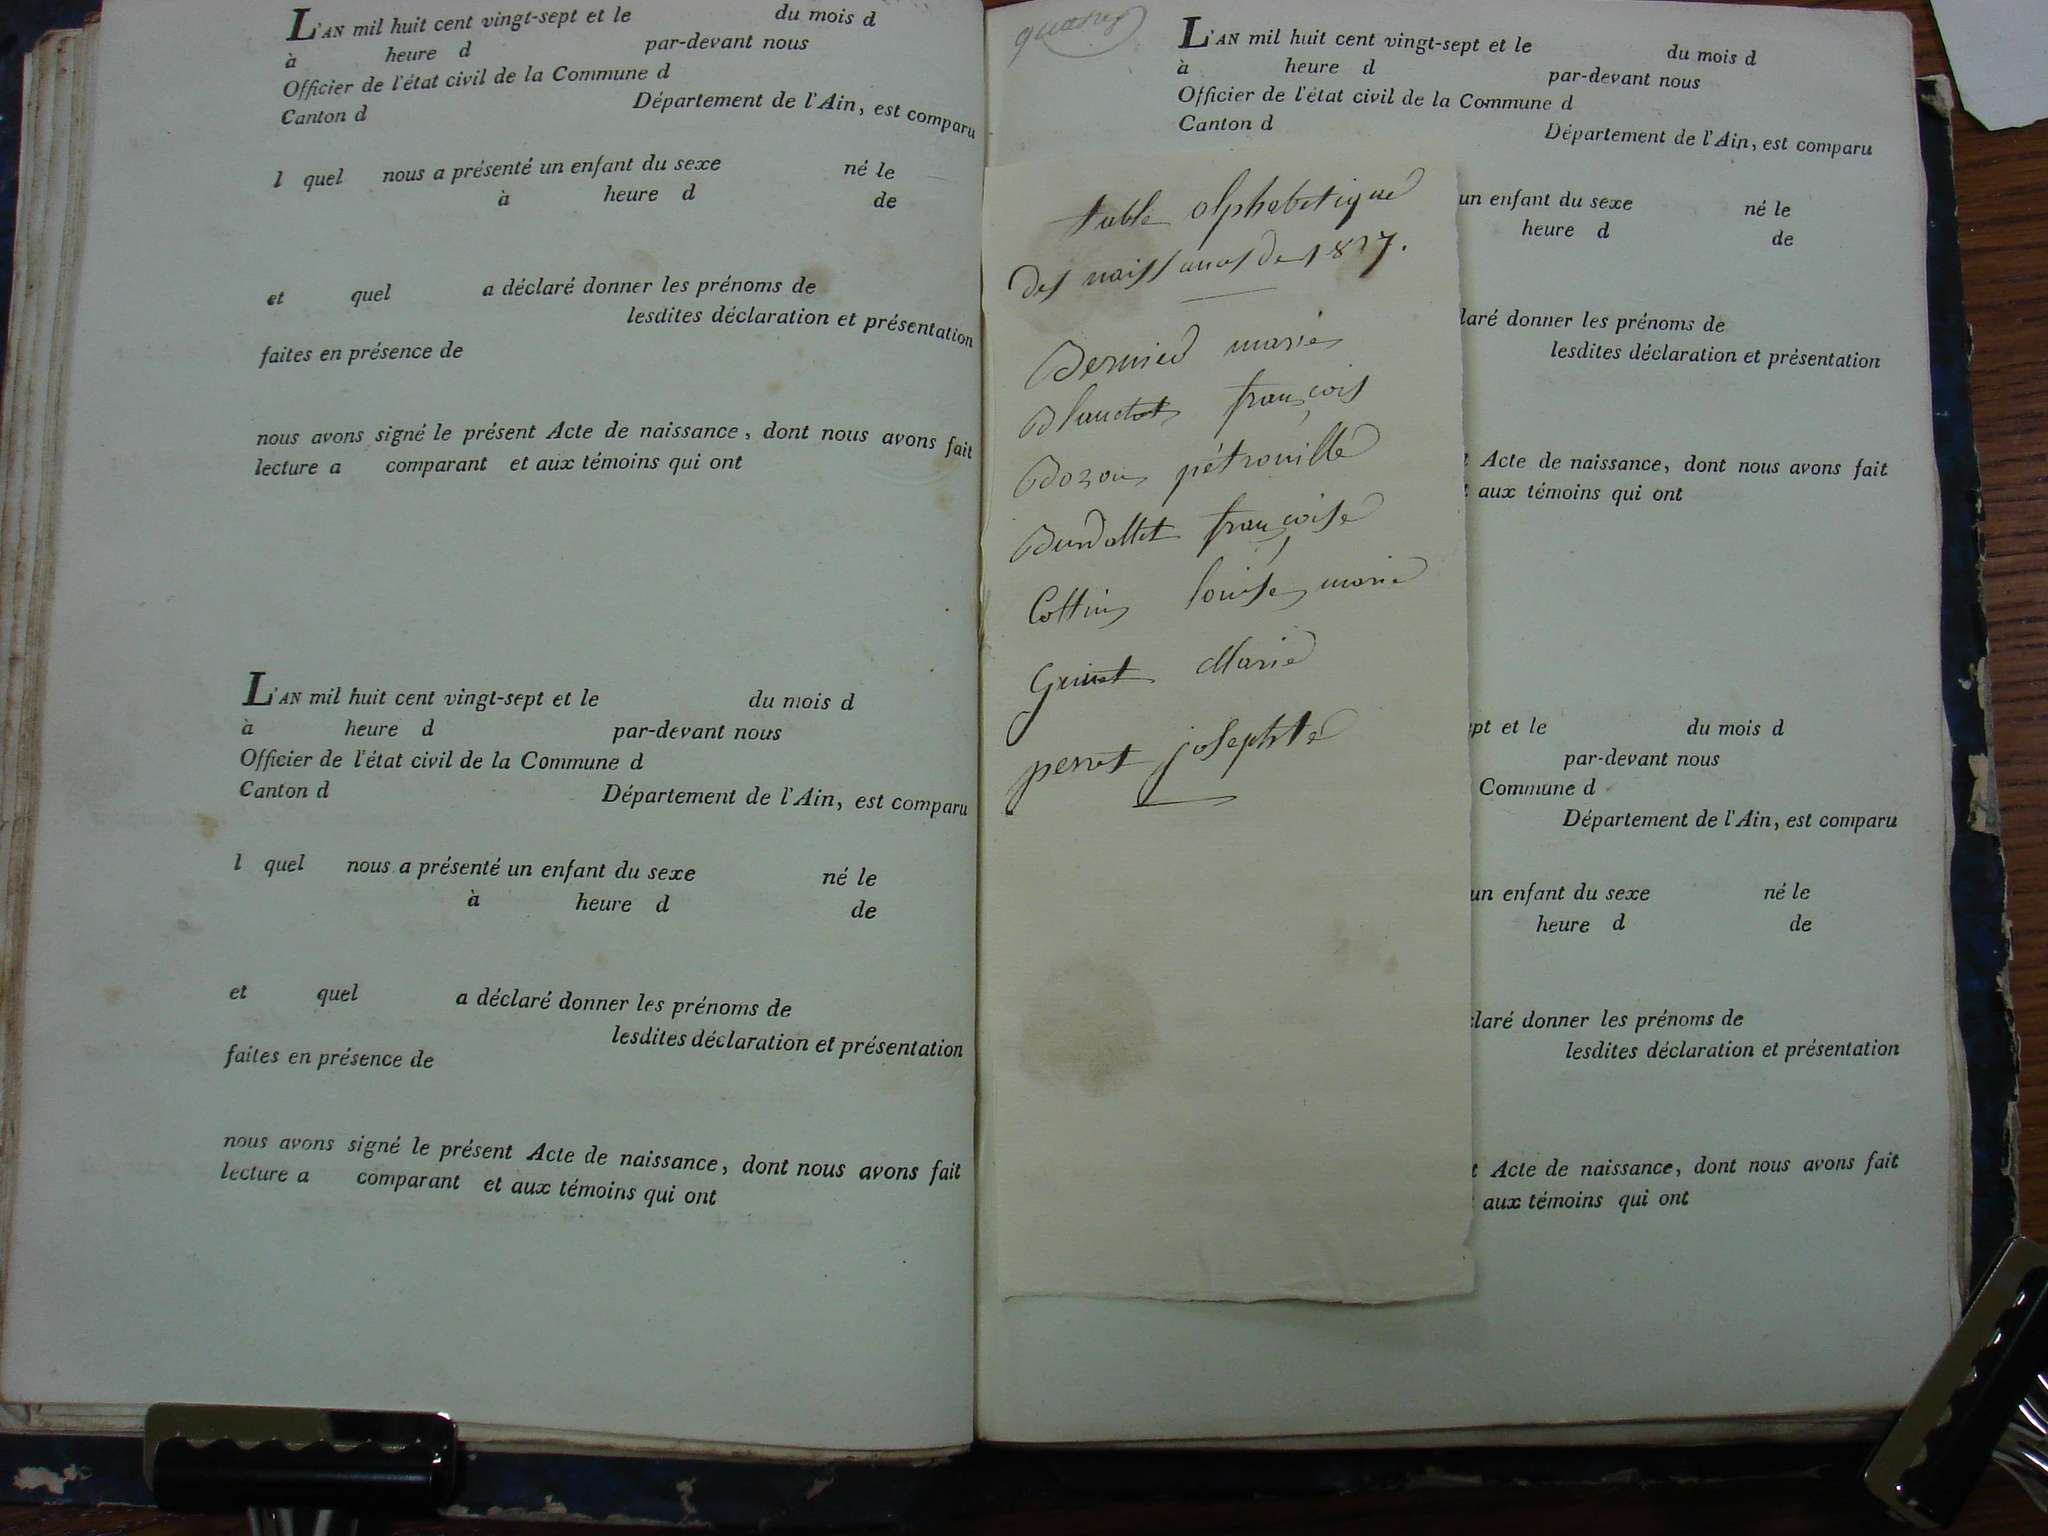 L'AN mil huit cent vingt-sept et le du mois d
à heure d par-devant nous
Officier de l'état civil de la Commune d
Canton d Département de l'Ain, est comparu
l quel nous a présenté un enfant du sexe né le
à heure d de
et quel a déclaré donner les prénoms de
lesdites déclaration et présentation
faites en présence de
nous avons signé le présent Acte de naissance, dont nous avons fait
lecture a comparant et aux témoins qui ont
L'AN mil huit cent vingt-sept et le du mois d
à heure d par-devant nous
Officier de l'état civil de la Commune d
Canton d Département de l'Ain, est comparu
l quel nous a présenté un enfant du sexe né le
à heure d de
et quel a déclaré donner les prénoms de
lesdites déclaration et présentation
faites en présence de
nous avons signé le présent Acte de naissance, dont nous avons fait
lecture a comparant et aux témoins qui ont
L'AN mil huit cent vingt-sept et le du mois d
à heure d par-devant nous
Officier de l'état civil de la Commune d
Canton d Département de l'Ain, est comparu
un enfant du sexe né le
heure d de
laré donner les prénoms de
lesdites déclaration et présentation
Acte de naissance, dont nous avons fait
aux témoins qui ont
table alphabetique
des naissances de 1827.
marie
françois
Bozon pétronille
Burdallet françoise
Cottin louise marie
Marie
perret josephte
pt et le du mois d
par-devant nous
Commune d
Département de l'Ain, est comparu
un enfant du sexe né le
heure d de
claré donner les prénoms de
lesdites déclaration et présentation
t Acte de naissance, dont nous avons fait
aux témoins qui ont